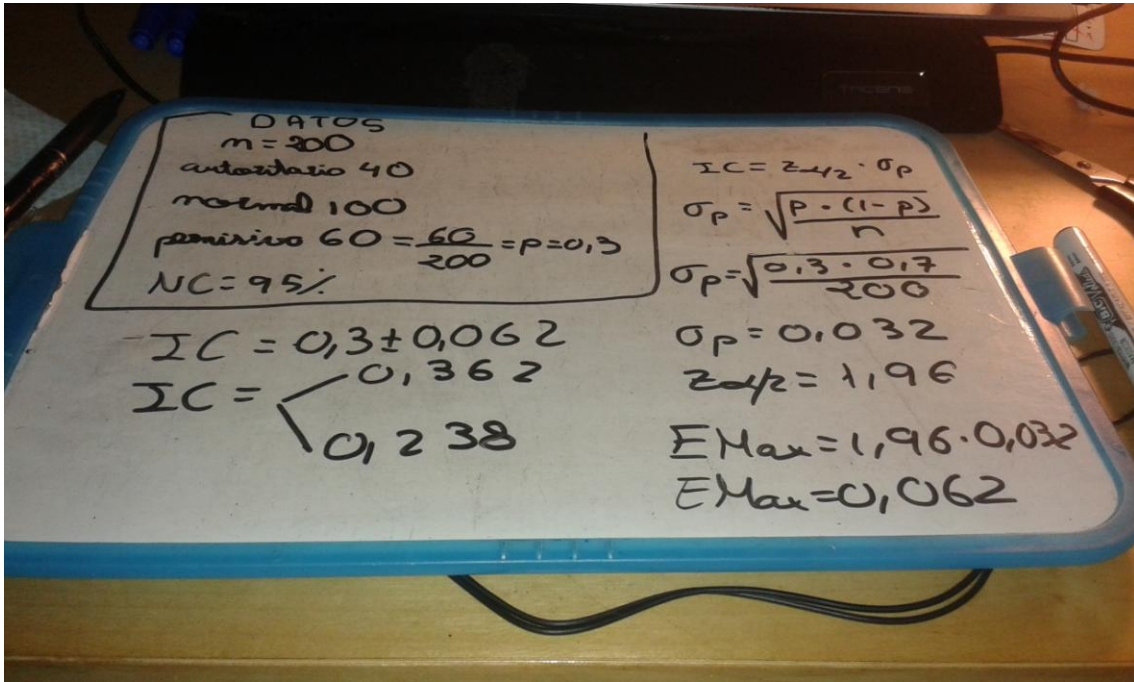 DATOS
n = 200
autoritario 40
normal 100
permisivo 60 = 60/200 = p = 0,3
NC = 95%
IC = 0,3 ± 0,062
IC = 0,362
0,238
IC = Zα/2 · σp
σp = √(p · (1 - p) / n)
σp = √(0,3 · 0,7 / 200)
σp = 0,032
Zα/2 = 1,96
EMax = 1,96 · 0,032
EMax = 0,062
TACENS